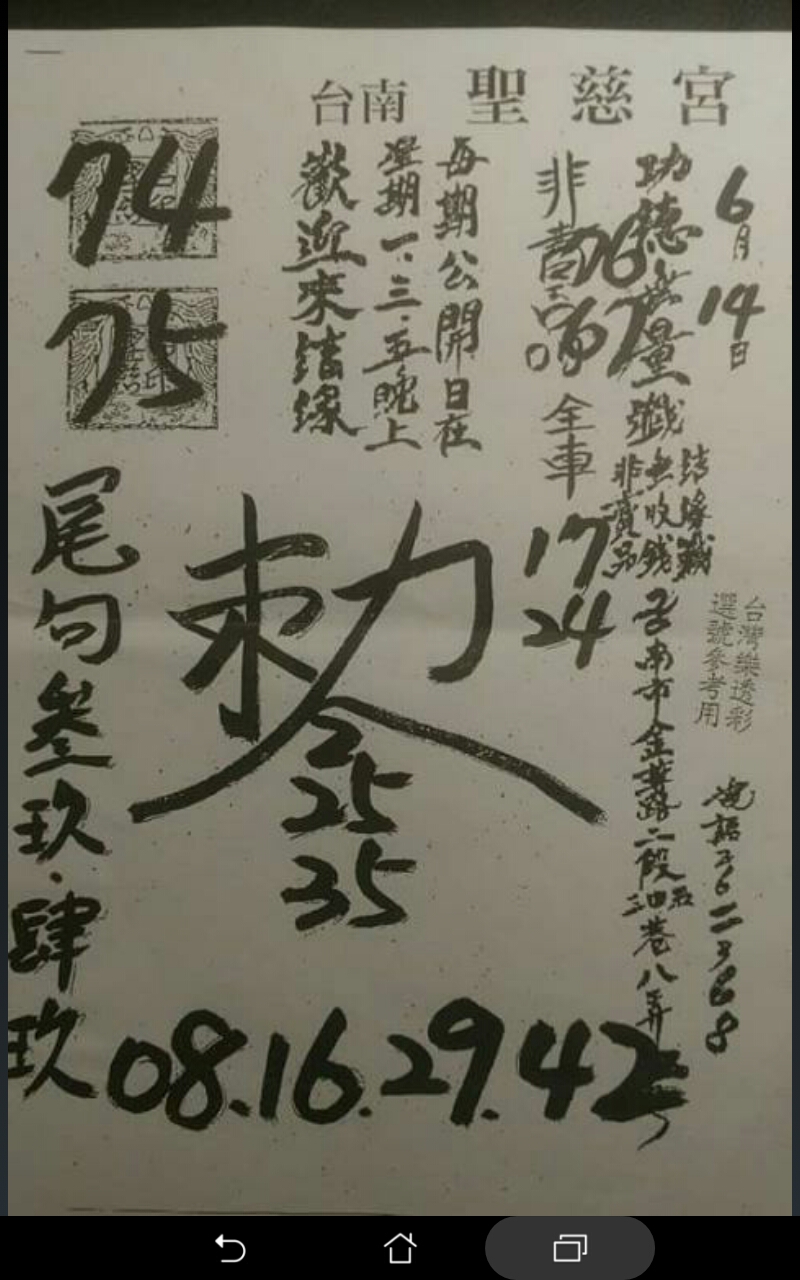 台南 聖慈宮
6月14日
功德無量
非賣品
06 07
全車
17
24
每期公開日在
星期一.三.五晚上
歡迎來結緣
74
75
結緣
無收錢
非賣品
台灣樂透彩
選號參考用
台南市金華路二段
巷八弄
電話
敕
2
25
35
尾句叁玖.肆玖
08.16.29.42